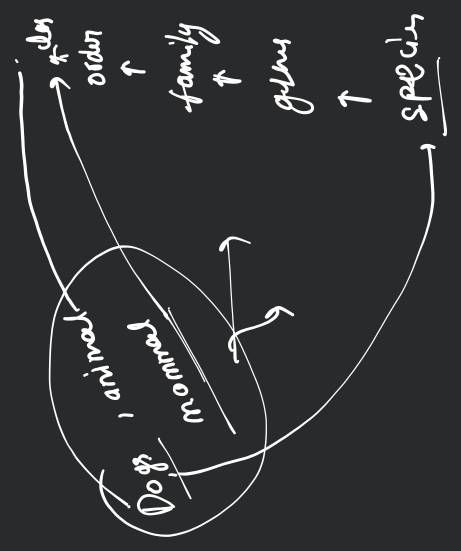 order
↑
family
↑
genus
↑
species
animal
mammal
Dogs